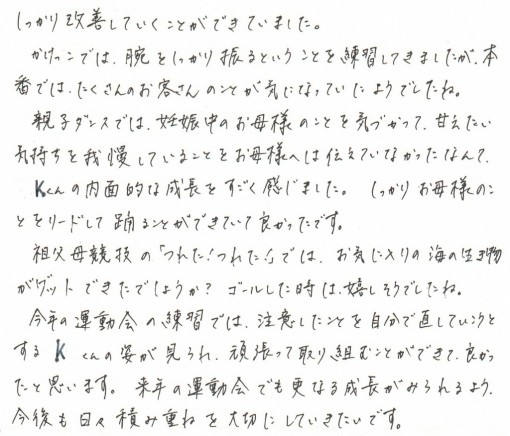 しっかり改善していくことができていました。
かけっこでは、腕をしっかり振るということを練習してきましたが、本
番では、たくさんのお客さんのことが気になっていたようでしたね。
親子ダンスでは、妊娠中のお母様のことを気づかって、甘えたい
気持ちを我慢していることをお母様へは伝えていなかったなんて、
Kくんの内面的な成長をすごく感じました。しっかりお母様のこ
とをリードして踊ることができていて良かったです。
祖父母競技の「つれた!つれた!」では、お気に入りの海の生き物
がゲットできたでしょうか?ゴールした時は、嬉しそうでしたね。
今年の運動会の練習では、注意したことを自分で直していこうと
するKくんの姿が見られ、頑張って取り組むことができて、良かっ
たと思います。来年の運動会でも更なる成長がみられるよう、
今後も日々積み重ねを大切にしていきたいです。